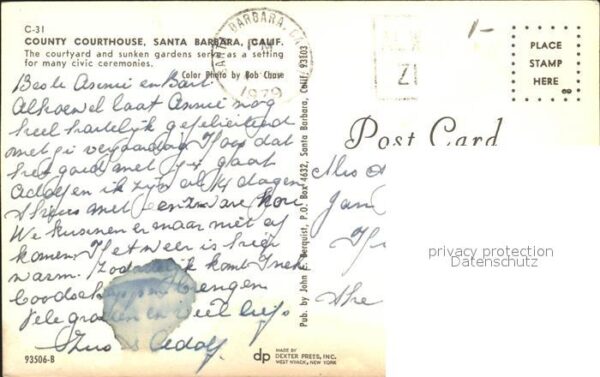 C-31
COUNTY COURTHOUSE, SANTA BARBARA, CALIF.
The courtyard and sunken gardens serve as a setting
for many civic ceremonies.
Color Photo by Bob Chase
Beste Annie en Bart
Alhoewel laat Annie nog
heel hartelijk gefeliciteerd
met je verjaardag. Hoop dat
het goed met jij gaat
Adolf en ik zijn al 14 dagen
thuis met een zware kou
We kunnen er maar niet af
komen. Het weer is hier
warm. komt
boodschappen brengen
Vele groeten en veel liefs
Adolf.
93506-B
SANTA BARBARA, CA
1979
Pub. by John E. Berquist, P.O. Box 4632, Santa Barbara, Calif. 93103
dp
MADE BY
DEXTER PRESS, INC.
WEST NYACK, NEW YORK
1-
PLACE
STAMP
HERE
Post Card
Mrs
privacy protection
Datenschutz
The